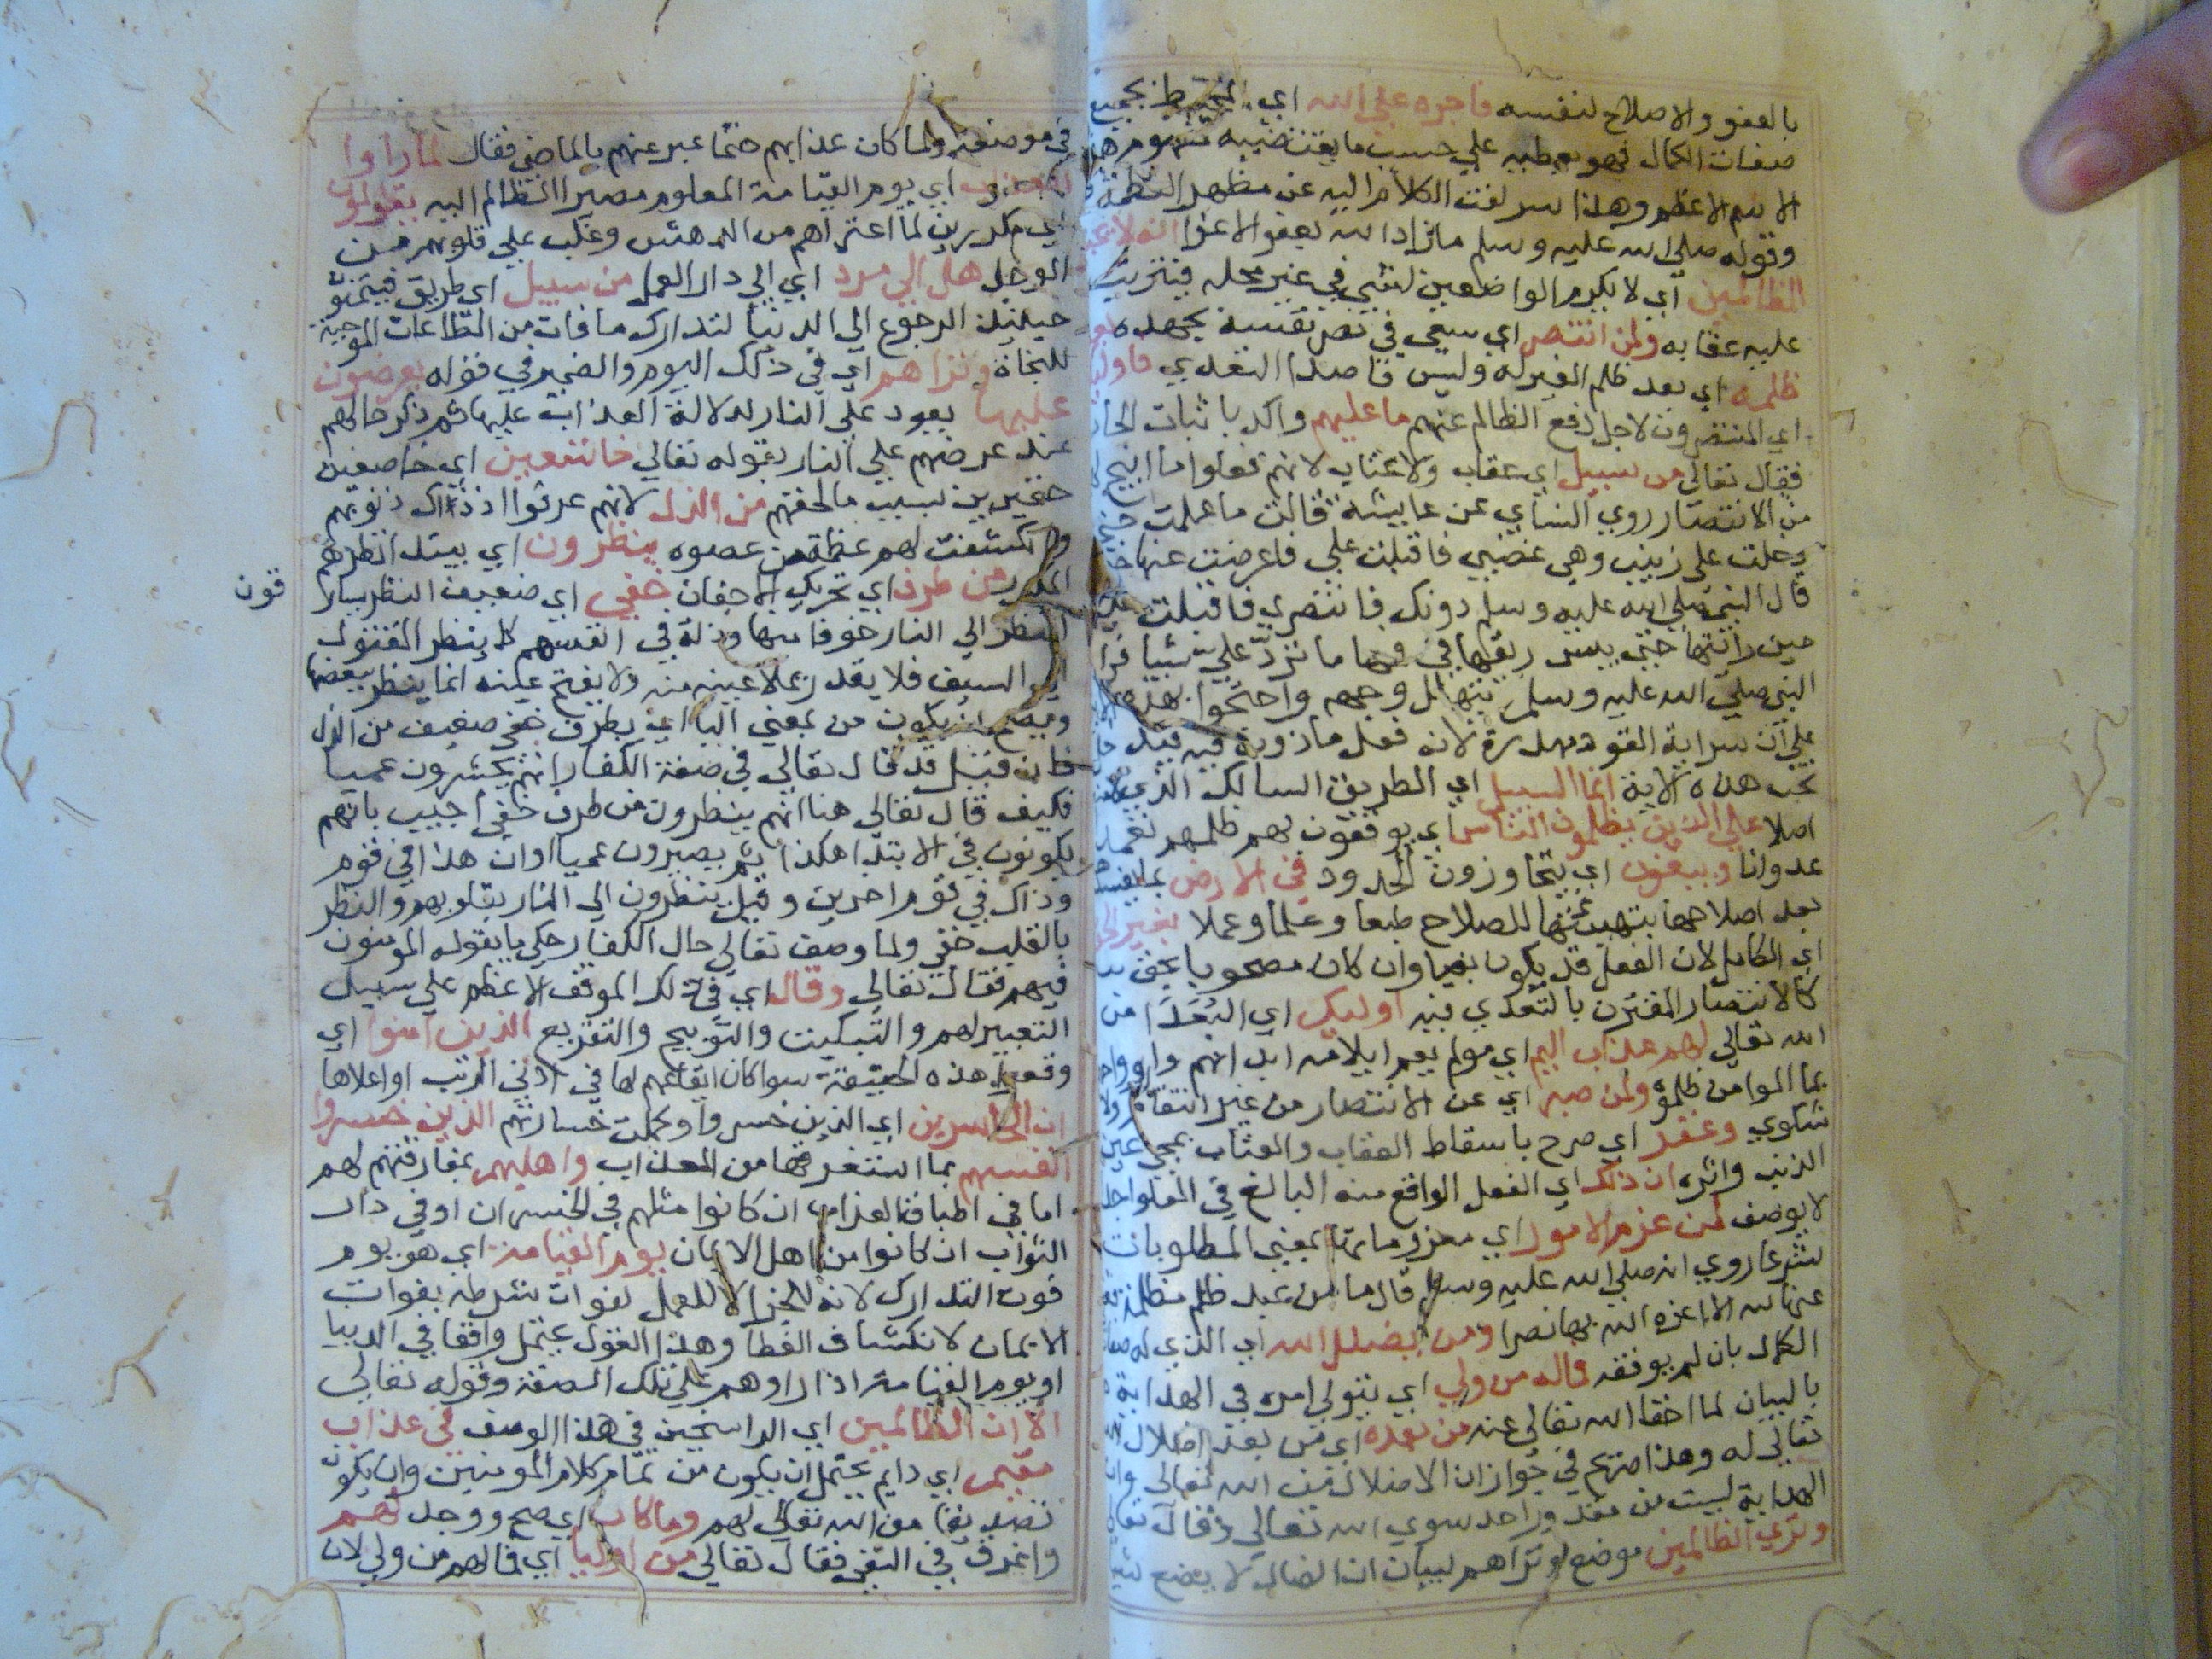 بالعفو والاصلاح لنفسه فاجره علي الله اي المحيط بجميع
صفات الكمال فهو يعطيه علي حسب ما يقتضيه مفهوم هذا
الاسم الاعظم وهذا سر لفت الكلام اليه عن مظهر العظمة
وقوله صلي الله عليه وسلم ما زاد الله بعفو الا عزا انه لا يحب
الظالمين اي لا يكرم الواضعين لشي في غير محله فيترتب
عليه عقابه ولمن انتصر اي سعي في نصر نفسه بجهده بعد
ظلمه اي بعد ظلم الغير له وليس قاصدا التعدي فاوليك
اي المنتصرون لاجل دفع الظالم عنهم ما عليهم واكد باثبات الجار
فقال تعالي من سبيل اي عقاب ولا عتاب لانهم فعلوا ما ابيح
من الانتصار روي النساي عن عايشة قالت ما علمت حتي
دخلت علي زينب وهي غضبي فاقبلت علي فاعرضت عنها حتي
قال النبي صلي الله عليه وسلم دونك فانتصري فاقبلت عليها
حين رايتها حتي يبس ريقها في فيها ما ترد علي شيا فرايت
النبي صلي الله عليه وسلم يتهلل وجهه واحتجوا بهذه
علي ان سراية القود مهدرة لانه فعل ماذون فيه فيدخل
تحت هذه الاية انما السبيل اي الطريق السالك الذي
اصلا علي الذين يظلمون الناس اي يوقعون بهم ظلمهم تعمدا
عدوانا ويبغون اي يتجاوزون الحدود في الارض بما يفسدها
بعد اصلاحها بتهييئها للصلاح طبعا وعلما وعملا بغير الحق
اي الكامل لان الفعل قد يكون بغيا وان كان مصحوبا بحق
كالانتصار المقترن بالتعدي فيه اوليك اي البعدا من
الله تعالي لهم عذاب اليم اي مولم يعم ايلامه ابدانهم وارواحهم
بما الموا من ظلموه ولمن صبر اي عن الانتصار من غير انتقام ولا
شكوي وغفر اي صرح باسقاط العقاب والعتاب بمحي عين
الذنب واثره ان ذلك اي الفعل الواقع منه البالغ في العلو حدا
لا يوصف لمن عزم الامور اي معزوماتها بمعني المطلوبات
شرعا روي انه صلي الله عليه وسلم قال ما من عبد ظلم مظلمة
عنها لله الا اعزه الله بها نصرا ومن يضلل الله اي الذي له صفات
الكمال بان لم يوفقه فما له من ولي اي يتولي امره في الهداية
بالبيان لما اخفا الله تعالي عنه من بعده اي من بعد اضلال الله
تعالي له وهذا صريح في جواز ان الاضلال من الله تعالي وان
الهداية ليست من مقدور احد سوي الله تعالي وقال تعالي
وتري الظالمين موضع وتراهم لبيان ان الضال لا يضع شيا
في موضعه ولما كان عذابهم حتما عبر عنهم بالماضي فقال لما راوا
العذاب اي يوم القيامة المعلوم مصير الظالم اليه يقولون
اي مكررين لما اعتراهم من الدهش وغلب علي قلوبهم من
الوجل هل الي مرد اي الي دار العمل من سبيل اي طريق فيتمنوا
حينيذ الرجوع الي الدنيا لتدارك ما فات من الطاعات الموجبة
للنجاة وتراهم اي في ذلك اليوم والضمير في قوله يعرضون
عليها يعود علي النار لدلالة العذاب عليها ثم ذكر حالهم
عند عرضهم علي النار بقوله تعالي خاشعين اي خاضعين
حقيرين بسبب ما لحقهم من الذل لانهم عرفوا اذ ذاك ذنوبهم
وانكشفت لهم عظمة من عصوه ينظرون اي يبتدا نظرهم
المكرر من طرف اي تحريك الاجفان خفي اي ضعيف النظر يسار
قون
النظر الي النار خوفا منها وذلة في انفسهم كما ينظر المقتول
الي السيف فلا يقدر يملا عينيه منه ولا يفتح عينه انما ينظر ببعضها
ويصح ان يكون من بمعني البا اي بطرف خفي ضعيف من الذل
فان قيل قد قال تعالي في صفة الكفار انهم يحشرون عميا
فكيف قال تعالي هنا انهم ينظرون من طرف خفي اجيب بانهم
يكونون في الابتدا هكذا ثم يصيرون عميا او ان هذا في قوم
وذاك في قوم اخرين وقيل ينظرون الي النار بقلوبهم والنظر
بالقلب خفي ولما وصف تعالي حال الكفار حكي ما يقوله المومنون
فيهم فقال تعالي وقال اي في ذلك الموقف الاعظم علي سبيل
التعيير لهم والتبكيت والتوبيخ والتقريع الذين امنوا اي
وقعوا هذه الحقيقة سوا كان ايقاعهم لها في ادني الرتب او اعلاها
ان الخاسرين اي الذين خسروا وكملت خسارتهم الذين خسروا
انفسهم بما استغرقها من العذاب واهليهم بمفارقتهم لهم
اما في اطباق العذاب ان كانوا مثلهم في الخسران او في دار
الثواب ان كانوا من اهل الايمان يوم القيامة اي هو يوم
فوت التدارك لانه للجزا لا للعمل لفوات شرطه بفوات
الايمان لانكشاف الغطا وهذا القول يحتمل واقعا في الدنيا
او يوم القيامة اذا راوهم علي تلك الصفة وقوله تعالي
الا ان الظالمين اي الراسخين في هذا الوصف في عذاب
مقيم اي دايم يحتمل ان يكون من تمام كلام المومنين وان يكون
تصديقا من الله تعالي لهم وما كان اي صح ووجد لهم
واغرق في النفي فقال تعالي من اوليا اي فما لهم من ولي لان